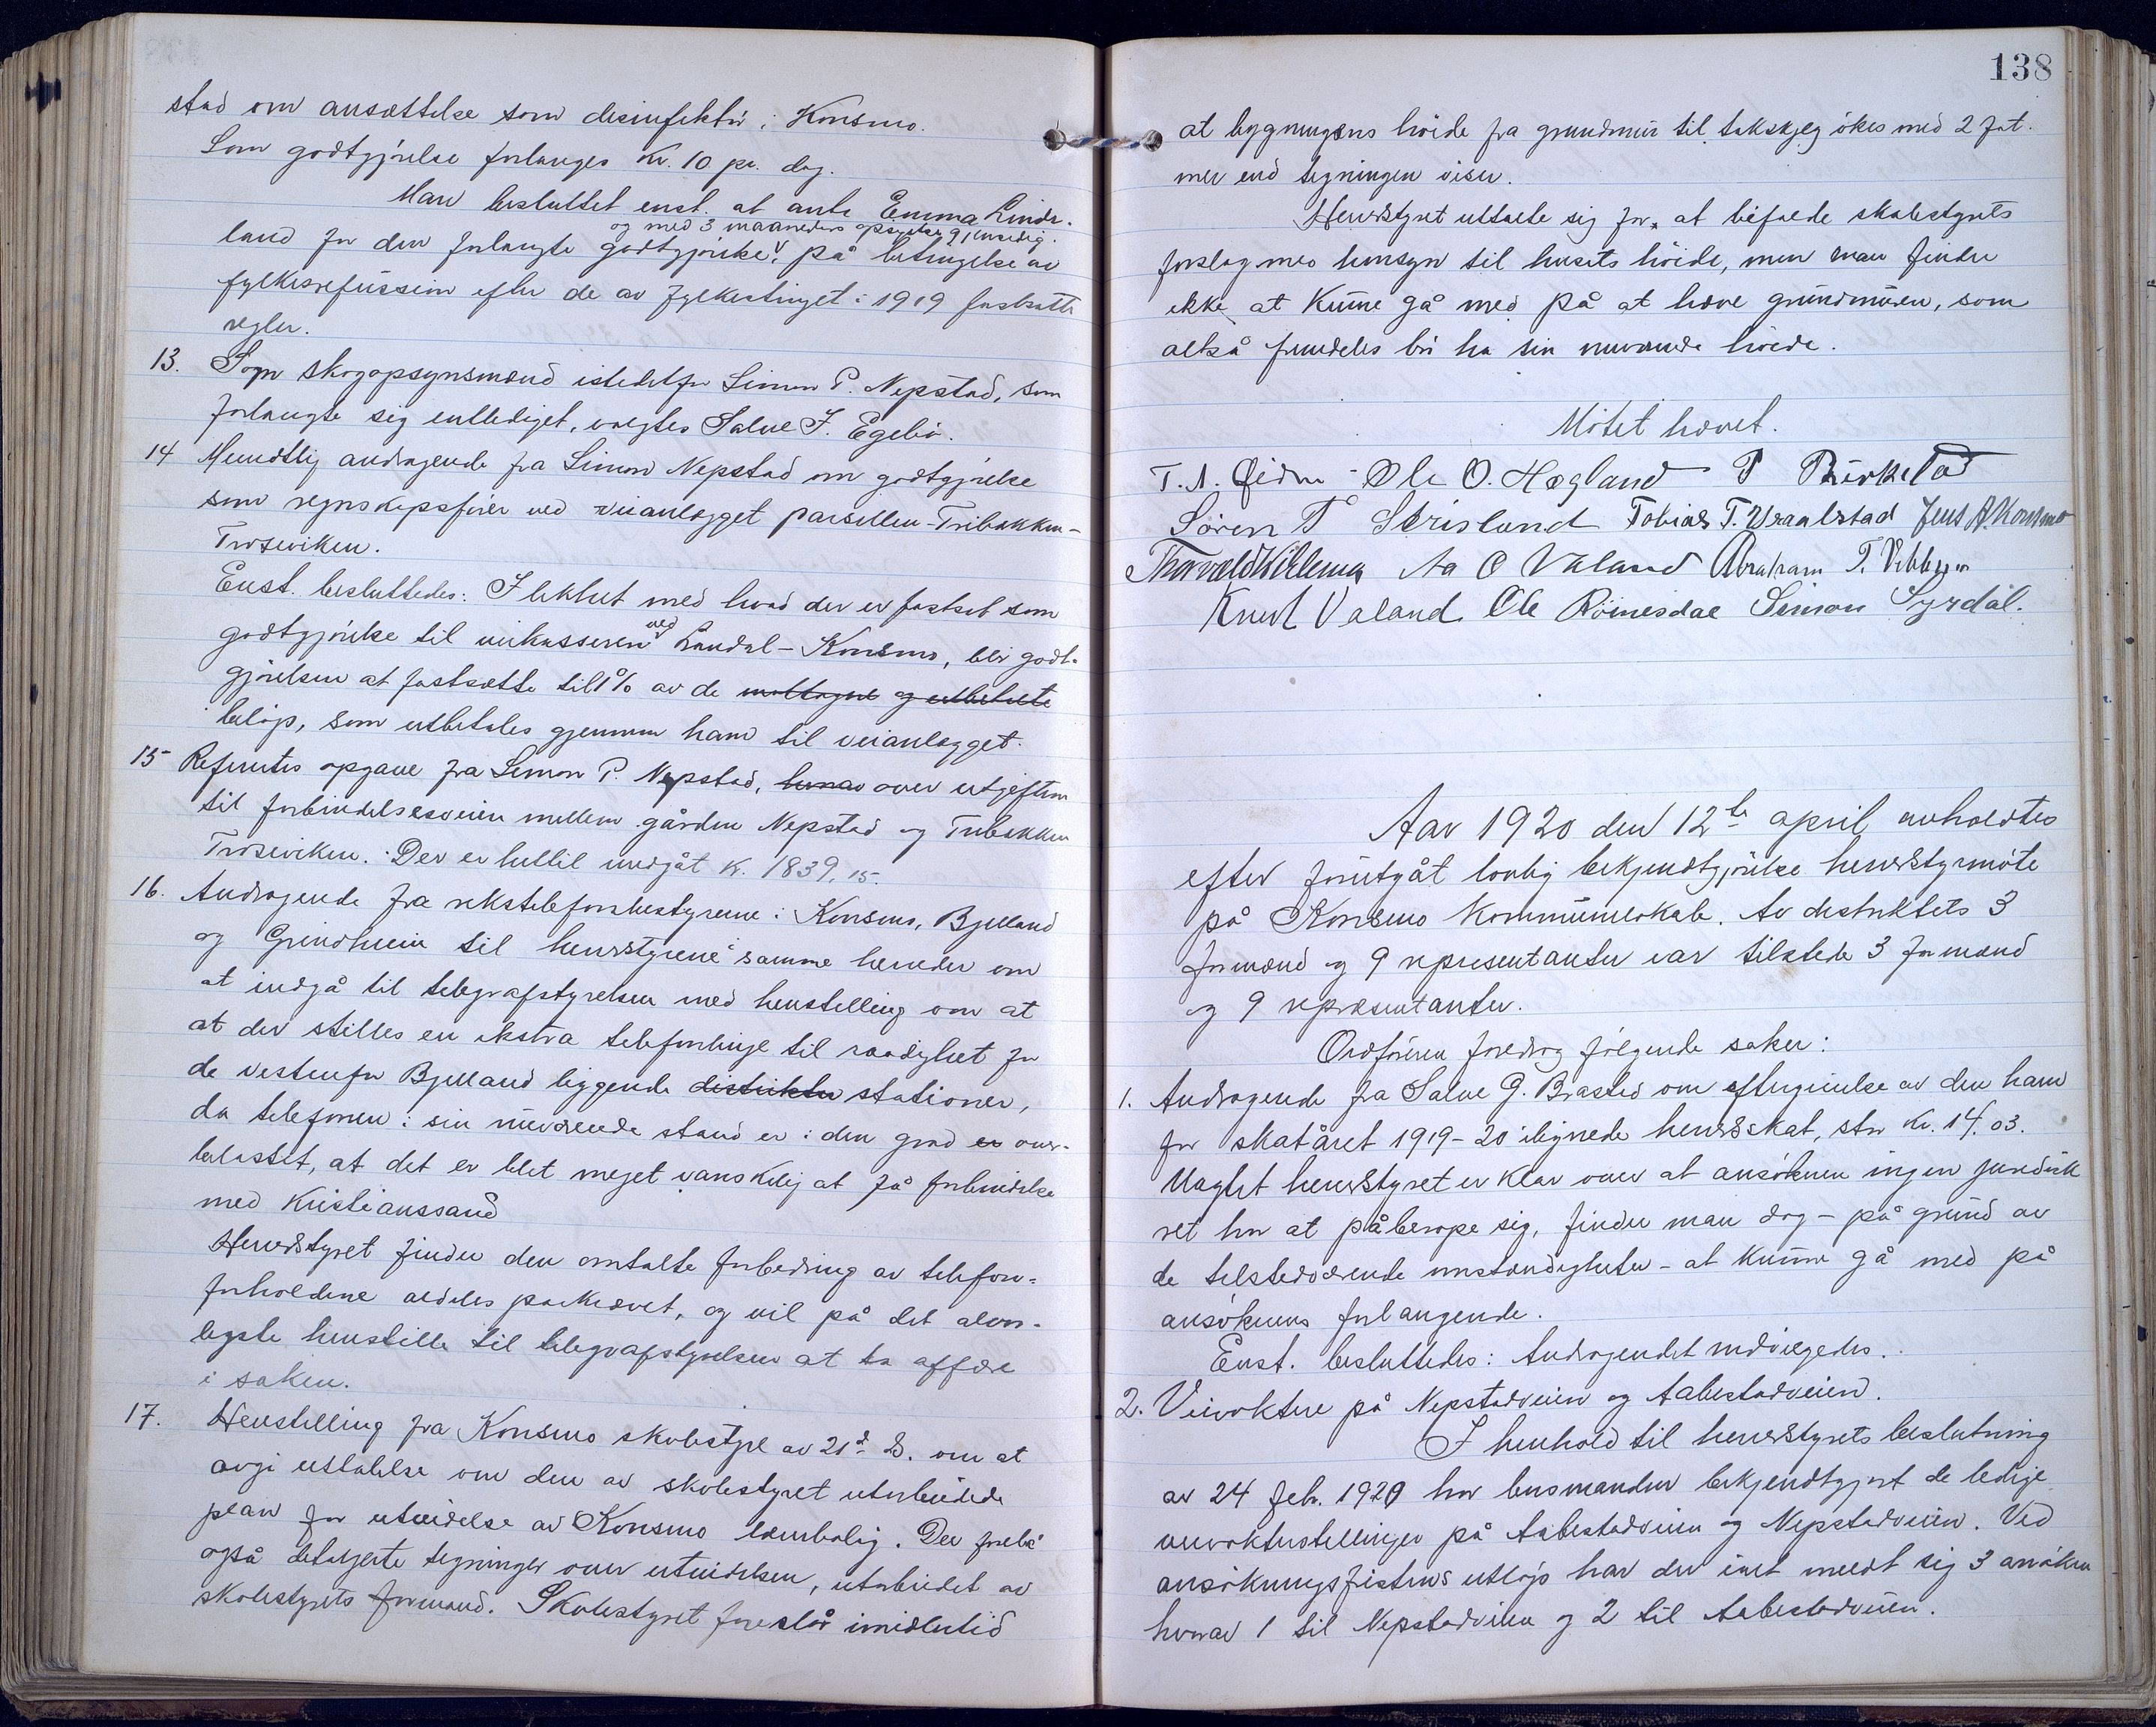 stad om ansættelse som desinfektør i Konsmo.
Som godtgjørelse forlanges Kr. 10 pr. dag.
Man besluttet enst. at anta Emma Linde-
og med 3 maaneders opsigelse gjensidig.
land for den forlangte godtgjørelse, på betingelse av
fylkesrefusion efter de av fylkestinget i 1919 fastsatte
regler.
13. Som skogopsynsmand istedetfor Simon P. Nepstad, som
forlangte sig entlediget, valgtes Salve J. Egebø.
14 Mundtlig andragende fra Simon Nepstad om godtgjørelse
som regnskapsfører ved veianlægget parsellen Tribakken-
Troseviken.
Enst. besluttedes: I likhet med hvad der er fastsat som
godtgjørelse til veikassereren ved Laudal-Konsmo, blir godt-
gjørelsen at fastsætte til 1% av de mottagne og utbetalte
beløp, som utbetales gjennem ham til veianlægget.
15 Refertes opgave fra Simon P. Nepstad, over utgiften
til forbindelsesveien mellem gården Nepstad og Tribakken
Troseviken. Der er hittil medgåt kr. 1839,15.
16. Andragende fra rikstelefonbestyrerne i Konsmo, Bjelland
og Grindheim til herredsstyrene i samme herreder om
at indgå til telegrafstyrelsen med henstilling om at
at der stilles en ekstra telefonlinje til raadighet for
de vestenfor Bjelland liggende distrikter stationer,
da telefonen i sin nuværende stand er i den grad er over-
belastet, at det er blet meget vanskelig at få forbindelse
med Kristianssand
Herredsstyret finder den omtalte forbedring av telefon-
forholdene aldeles påkrævet, og vil på det alvor-
ligste henstille til telegrafstyrelsen at ta affære
i saken.
17. Henstilling fra Konsmo skolestyre av 21d. ds. om at
avgi uttalelse om den av skolestyret utarbeidede
plan for utvidelse av Konsmo lærerbolig. Der forelå
også detaljerte tegninger over utvidelsen, utarbeidet av
skolestyrets formand. Skolestyret foreslår imidlertid
138
at bygningens høide fra grundmur til takskjeg økes med 2 fot.
mer end tegningen viser.
Herredsstyret uttalte sig for, at bifalde skolestyrets
forslag med hensyn til husets høide, men man finder
ikke at kunne gå med på at hæve grundmuren, som
altså fremdeles bør ha sin nuværende høide.
Møtet hævet.
T. A. Øidne Ole O. Høgland P Birkeland
Søren T Skrisland Tobias T. Ueraalstad Jens A. Konsmo
Thorvald Killema Aa O Valand Abraham T. Vibli
Knut Valand Ole Röinesdal Simon Syrdal.
Aar 1920 den 12te april avholdtes
efter forutgåt lovlig bekjendtgjørelse herredsstyrmøte
på Konsmo Kommunelokale. Av distriktets 3
formænd og 9 repræsentanter var tilstede 3 formænd
og 9 repræsentanter.
Ordføreren foredrog følgende saker:
1. Andragende fra Salve G. Brasted om eftergivelse av den ham
for skatåret 1919-20 ilignede herredsskat, stor kr. 14.03.
Uagtet herredsstyret er klar over at ansøkeren ingen juridisk
ret har at påberope sig, finder man dog - på grund av
de tilstedeværende omstændigheter - at kunne gå med på
ansøkerens forlangende.
Enst. besluttedes: Andragendet indvilgedes.
2. Veivoktere på Nepstadveien og Aabestadveien.
I henhold til herredsstyrets beslutning
av 24 feb. 1920 har lensmanden bekjendtgjort de ledige
veivokterstillinger på Aabestadveien og Nepstadveien. Ved
ansøkningsfristens utløp har der ialt meldt sig 3 ansøkere
hvorav 1 til Nepstadveien og 2 til Aabestadveien.